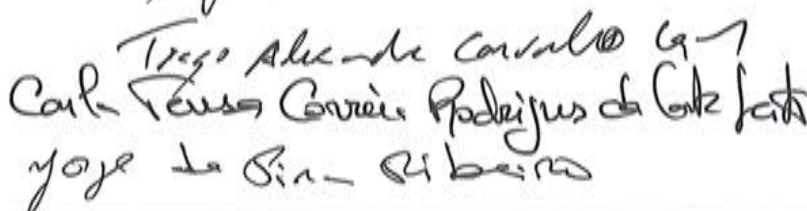 Tiago Alexandre Carvalho
Carla Teresa Correia Rodrigues da Costa
Jorge de Pina Ribeiro